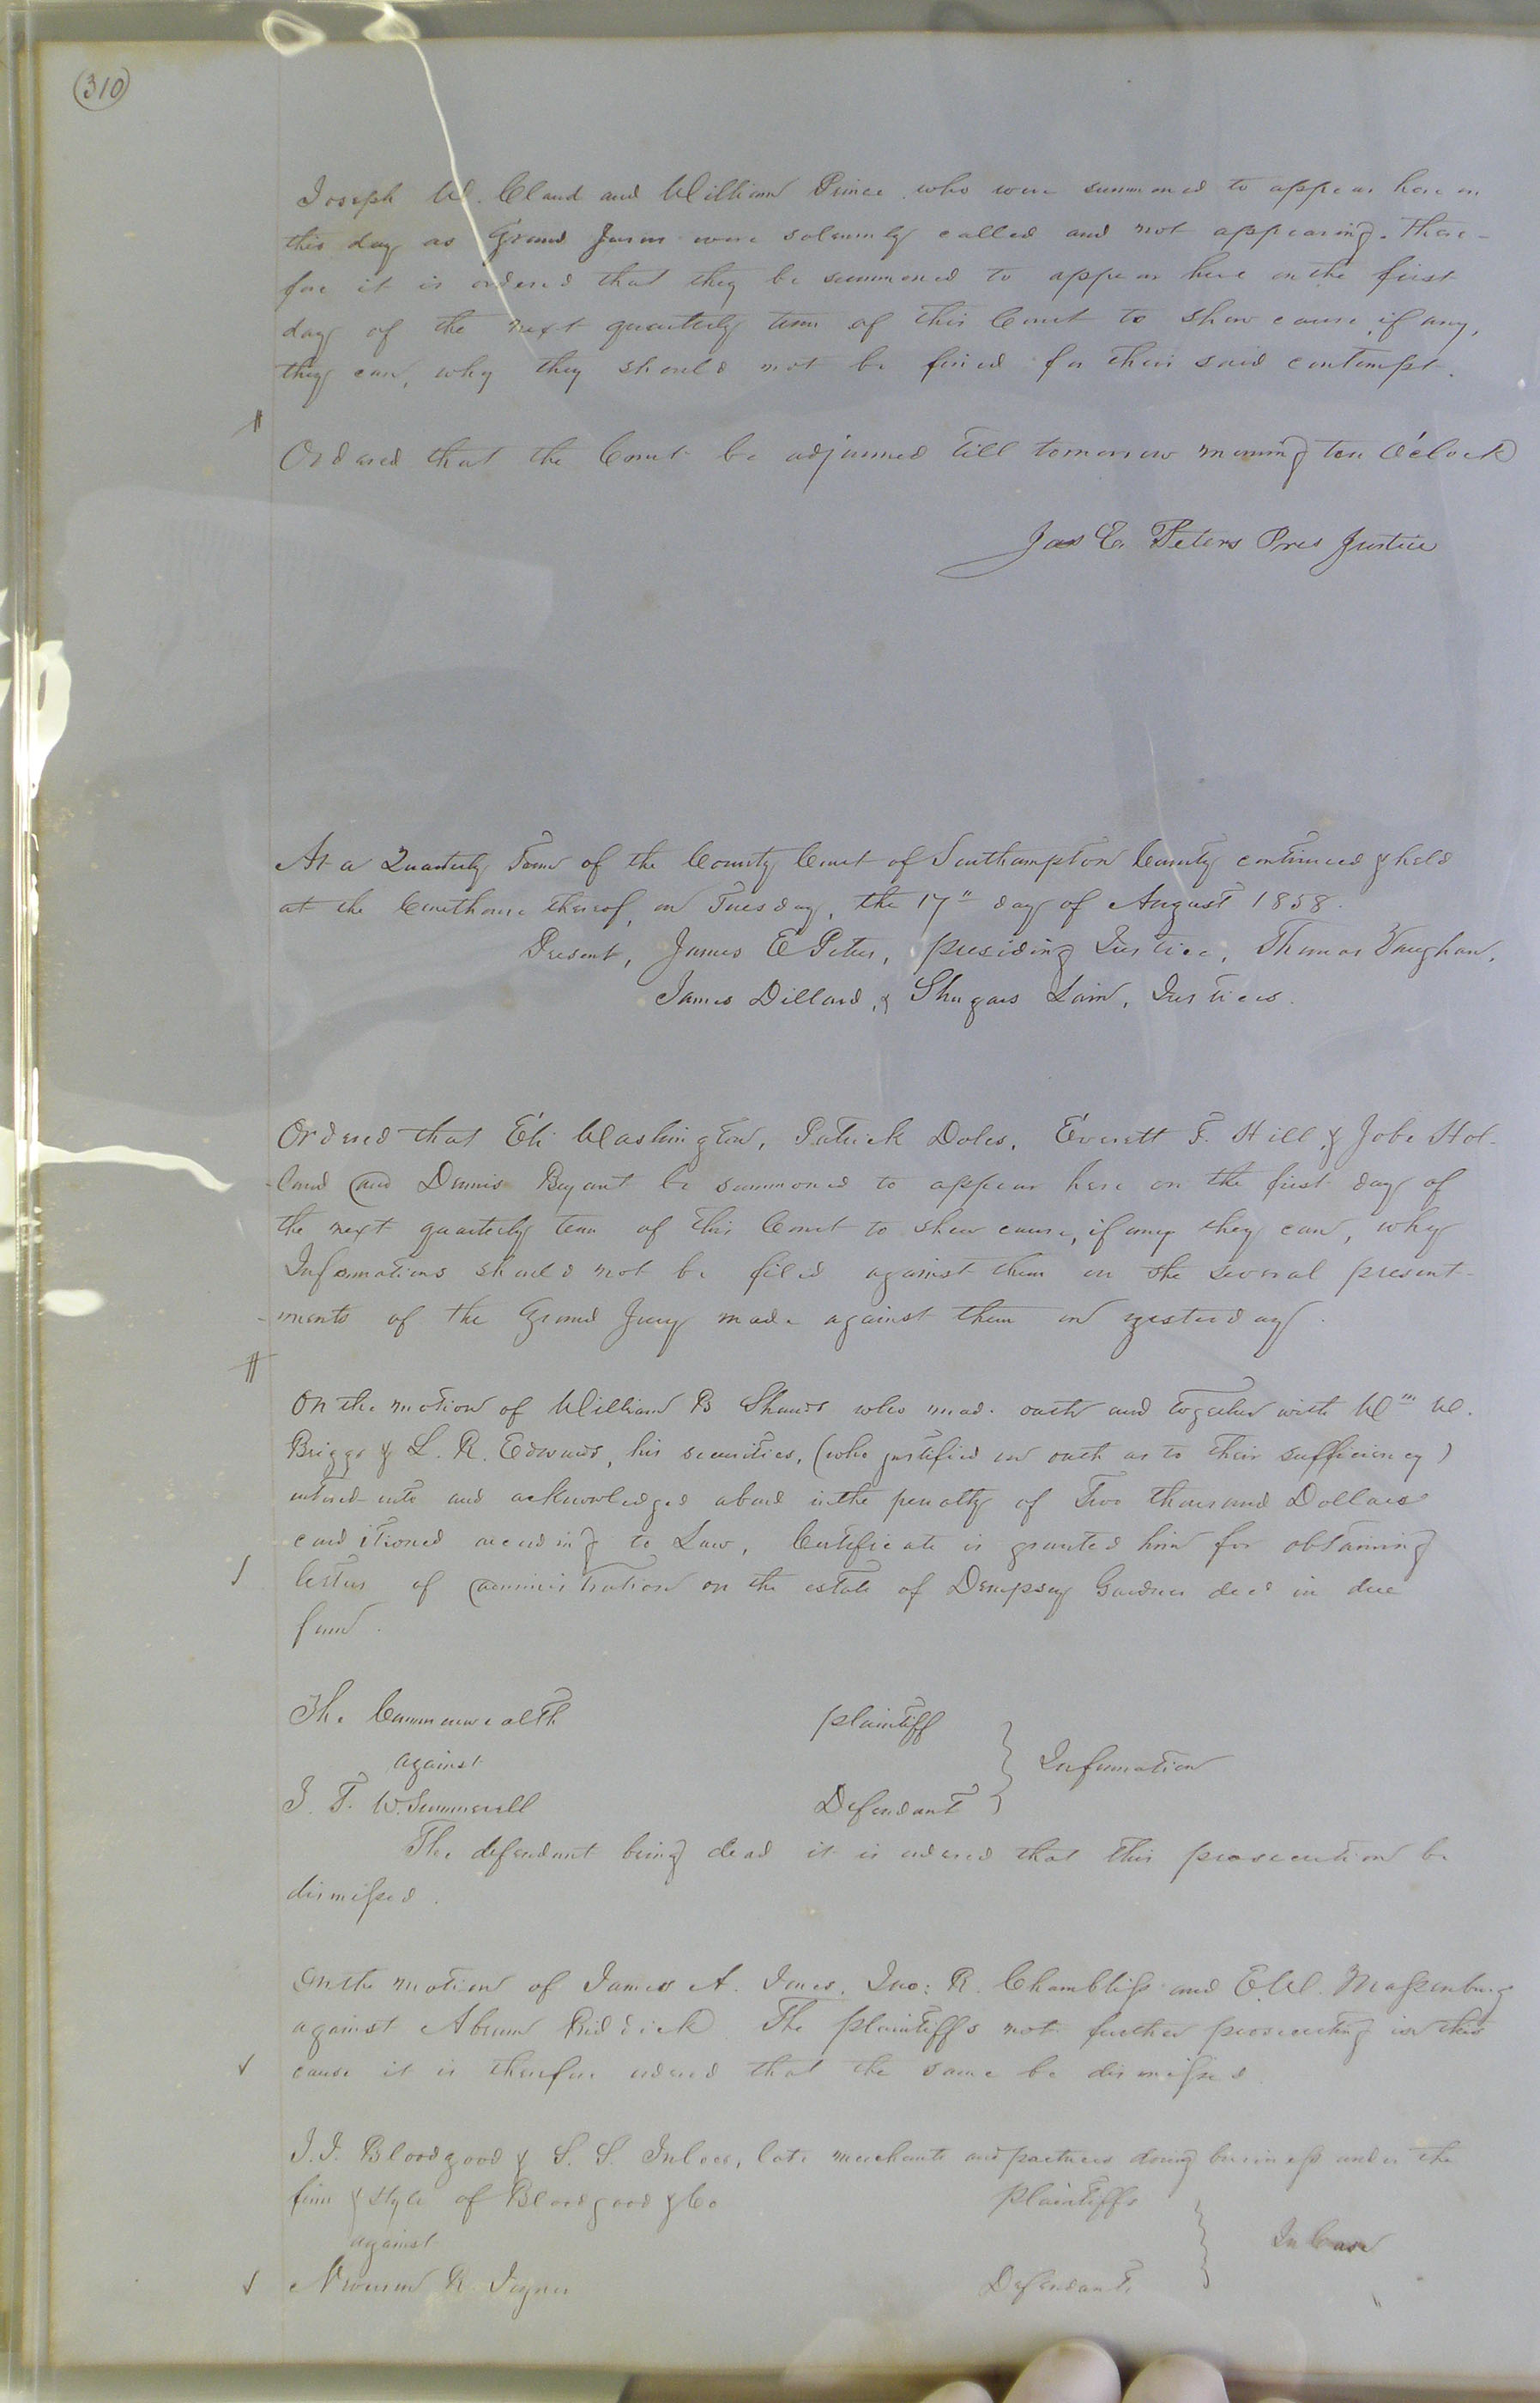 310
Joseph W. Claud and William Prince who were summoned to appear here on
this day as Grand Jurors were solemnly called and not appearing. There-
fore it is ordered that they be summoned to appear here on the first
day of the next quarterly term of this Court to shew cause, if any,
they can, why they should not be fined for their said contempt.
Ordered that the Court be adjourned till tomorrow morning ten O'clock
Jas E. Peters Pres Justice
At a Quarterly Term of the County Court of Southampton County continued & held
at the Courthouse thereof, on Tuesday, the 17" day of August 1858.
Present, James E Peters, presiding Justice, Thomas Vaughan,
James Dillard, & Shugars Lain, Justices.
Ordered that Eli Washington, Patrick Doles, Everett F. Hill & Jobe Hol-
-land and Dennis Bryant be summoned to appear here on the first day of
the next quarterly term of this Court to shew cause, if any they can, why
Informations should not be filed against them on the several present-
-ments of the Grand Jury made against them on yesterday.
On the motion of William B Shands who made oath and together with Wm W.
Briggs & L. R. Edwards, his securities, (who justified on oath as to their sufficiency)
entered into and acknowledged a bond in the penalty of Two thousand Dollars
conditioned according to Law, Certificate is granted him for obtaining
letters of administration on the estate of Dempsey Gardner decd in due
form.
The Commonwealth plaintiff
against } Information
J. T. W. Summerell Defendant
The defendant being dead it is ordered that this prosecution be
dismissed.
On the motion of James A. Jones, Jno: R. Chambliss and E. W. Massenburg
against Abram Riddick The plaintiffs not further prosecuting in this
cause it is therefore ordered that the same be dismissed.
J. J. Bloodgood & S. S. Inslee, late merchants and partners doing business under the
firm & style of Bloodgood & Co Plaintiffs
against } In Case
Newsom R. Joyner Defendant